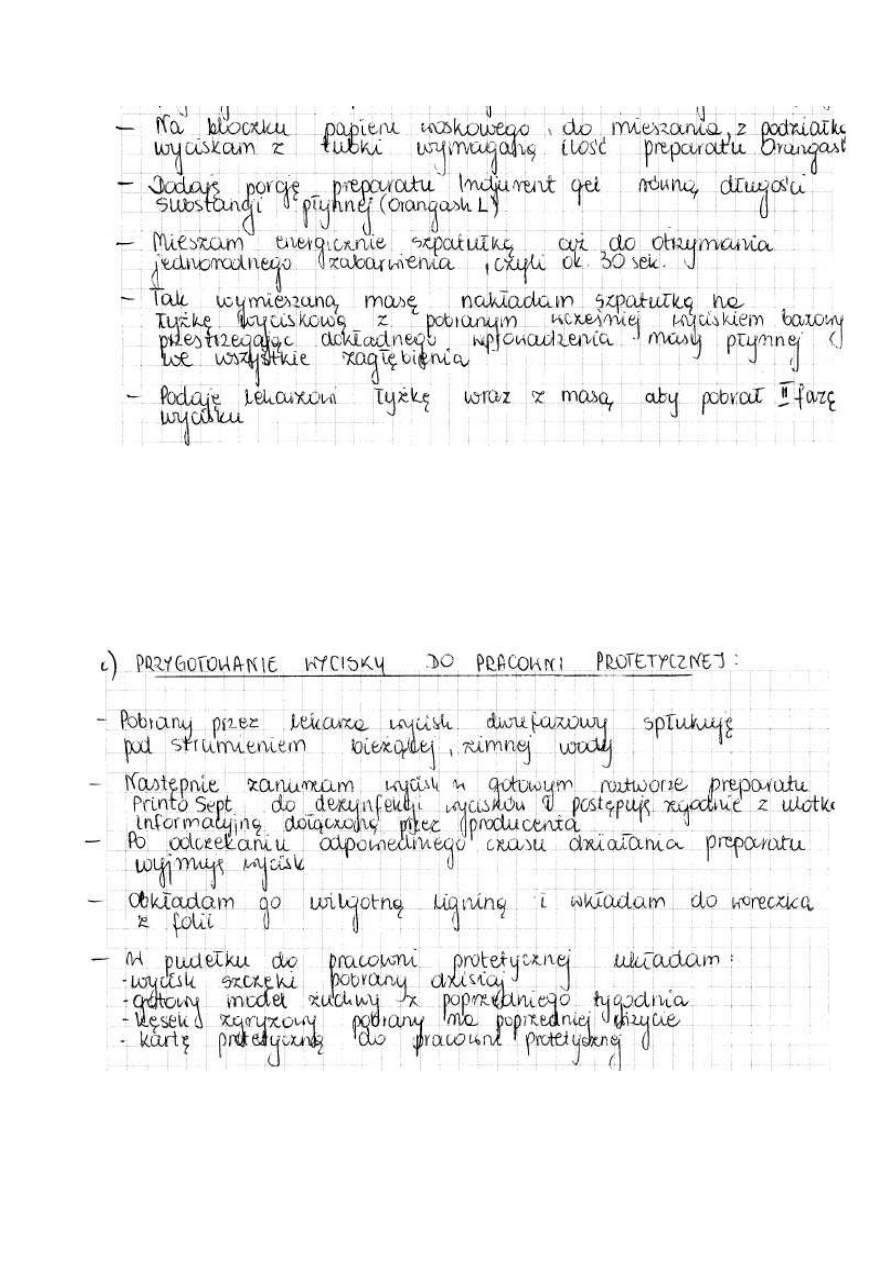 - Na bloczku papieru woskowego, do mieszania, z podziałką
wyciskam z tubki wymaganą ilość preparatu Orangash
- Dodaję porcję preparatu Indurent gel równą długości
substancji płynnej (Orangash L)
- Mieszam energicznie szpatułką aż do otrzymania
jednorodnego zabarwienia, czyli ok. 30 sek.
- Tak wymieszaną masę nakładam szpatułką na
łyżkę wyciskową z pobranym wcześniej wyciskiem bazowy
przestrzegając dokładnego wprowadzenia masy płynnej
we wszystkie zagłębienia
- Podaję lekarzowi łyżkę wraz z masą, aby pobrał II fazę
wycisku
c) PRZYGOTOWANIE WYCISKU DO PRACOWNI PROTETYCZNEJ:
- Pobrany przez lekarza wycisk dwufazowy spłukuję
pod strumieniem bieżącej, zimnej wody
- Następnie zanurzam wycisk w gotowym roztworze preparatu
Printo Sept do dezynfekcji wycisków i postępuję zgodnie z ulotką
informacyjną dołączoną przez producenta
- Po odczekaniu odpowiedniego czasu działania preparatu
wyjmuję wycisk
- Obkładam go wilgotną ligniną i wkładam do woreczka
z folii
- W pudełku do pracowni protetycznej układam:
- wycisk szczęki pobrany dzisiaj
- gotowy model żuchwy z poprzedniego tygodnia
- kęsek zgryzowy pobrany na poprzedniej wizycie
- kartę protetyczną do pracowni protetycznej